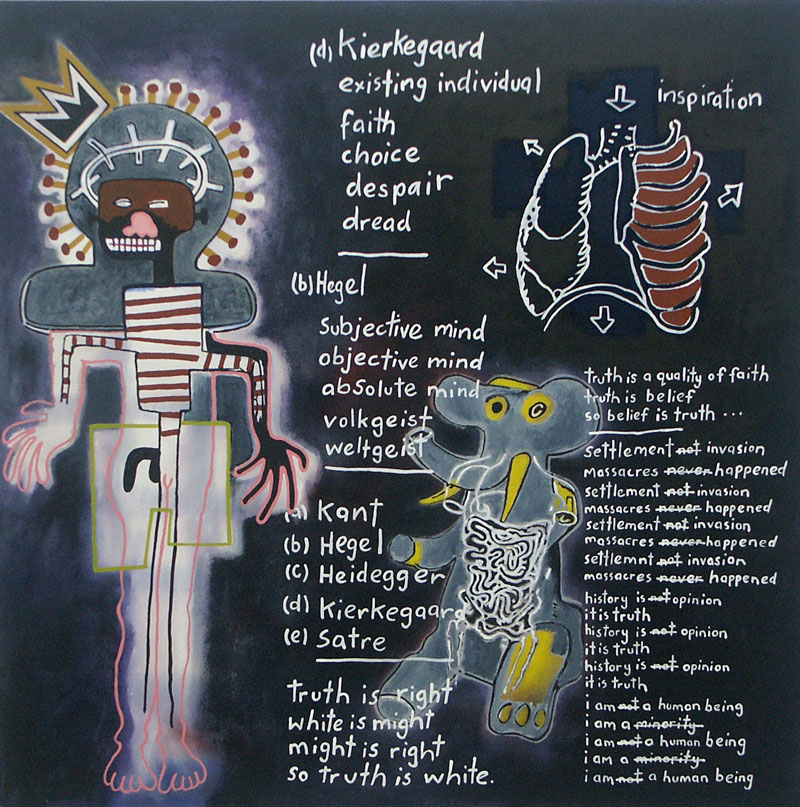 (d) Kierkegaard
existing individual
faith
choice
despair
dread
(b) Hegel
subjective mind
objective mind
absolute mind
volkgeist
weltgeist
(a) Kant
(b) Hegel
(c) Heidegger
(d) Kierkegaard
(e) Satre
truth is right
white is might
might is right
so truth is white.
inspiration
truth is a quality of faith
truth is belief
so belief is truth ...
settlement not invasion
massacres never happened
settlement not invasion
massacres never happened
settlement not invasion
massacres never happened
settlemnt not invasion
massacres never happened
history is not opinion
it is truth
history is not opinion
it is truth
history is not opinion
it is truth
i am not a human being
i am a minority
i am not a human being
i am a minority
i am not a human being